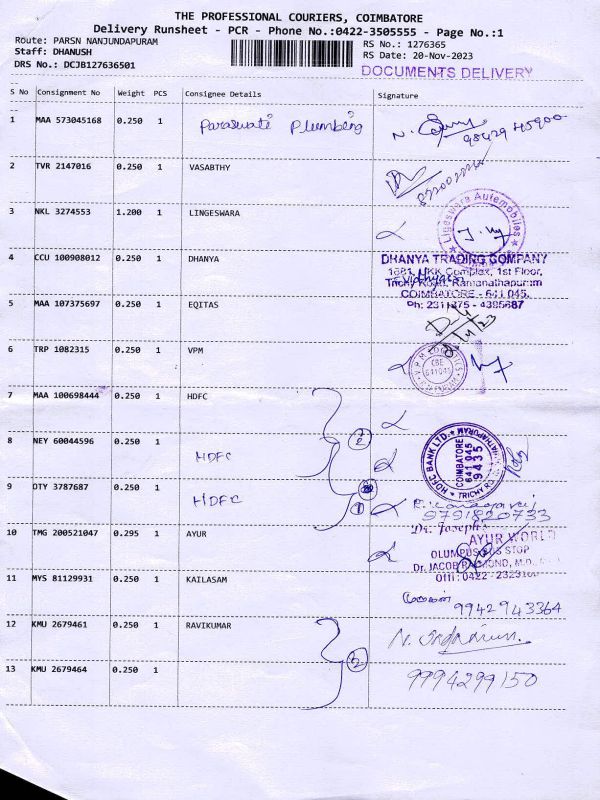 THE PROFESSIONAL COURIERS, COIMBATORE
Delivery Runsheet - PCR - Phone No.:0422-3505555 - Page No.:1
Route: PARSN NANJUNDAPURAM
RS No.: 1276365
Staff: DHANUSH
RS Date: 20-Nov-2023
DRS No.: DCJB127636501
DOCUMENTS DELIVERY
S No Consignment No Weight PCS Consignee Details Signature
1 MAA 573045168 0.250 1 Paraswati Plumbing
2 TVR 2147016 0.250 1 VASABTHY
3 NKL 3274553 1.200 1 LINGESWARA
Lingeswara Automobiles
4 CCU 100908012 0.250 1 DHANYA
DHANYA TRADING COMPANY
1681, NKK Complex, 1st Floor,
Trichy Road, Ramanathapuram
COIMBATORE - 641 045.
5 MAA 107375697 0.250 1 EQITAS
6 TRP 1082315 0.250 1 VPM
CBE
7 MAA 100698444 0.250 1 HDFC
8 NEY 60044596 0.250 1 HDFC
2
HDFC BANK LTD.
COIMBATORE
641 045
9435
TRICHY RD
9 DTY 3787687 0.250 1 HDFC
1
9791820733
10 TMG 200521047 0.295 1 AYUR
Dr. Joseph's
AYUR WORLD
OLUMPUS BUS STOP
11 MYS 81129931 0.250 1 KAILASAM
9942943364
12 KMU 2679461 0.250 1 RAVIKUMAR
2
13 KMU 2679464 0.250 1
9994299150